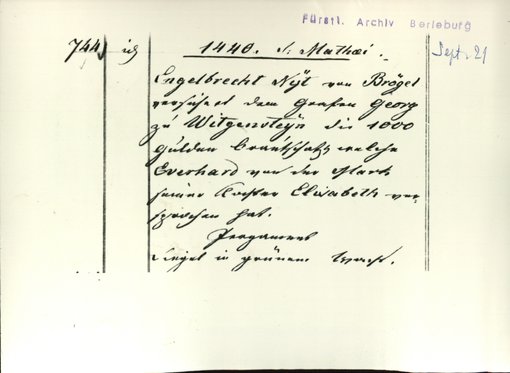 Fürstl. Archiv Berleburg
744, 1440. S. Mathäi. Sept. 21
Engelbrecht Nÿt von Brögel
versichert dem Grafen Georg
zu Witgensteÿn die 1000
Gulden Brautschatz welche
Everhard von der Mark
seiner Tochter Elisabeth ver-
sprochen hat.
Pergament
Siegel in grünem Wachs.